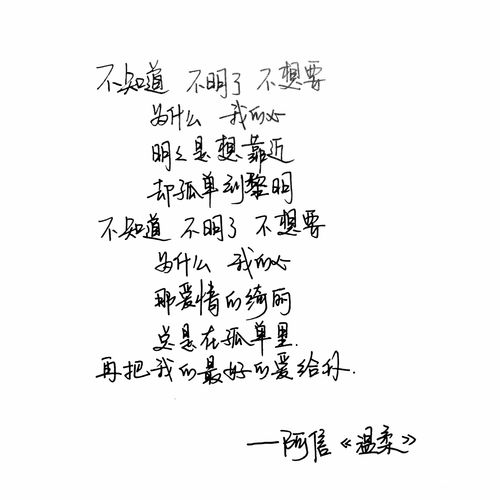 不知道 不明了 不想要
为什么 我的心
明明是想靠近
却孤单到黎明
不知道 不明了 不想要
为什么 我的心
那爱情的绮丽
总是在孤单里.
再把我的最好的爱给你.
——阿信《温柔》